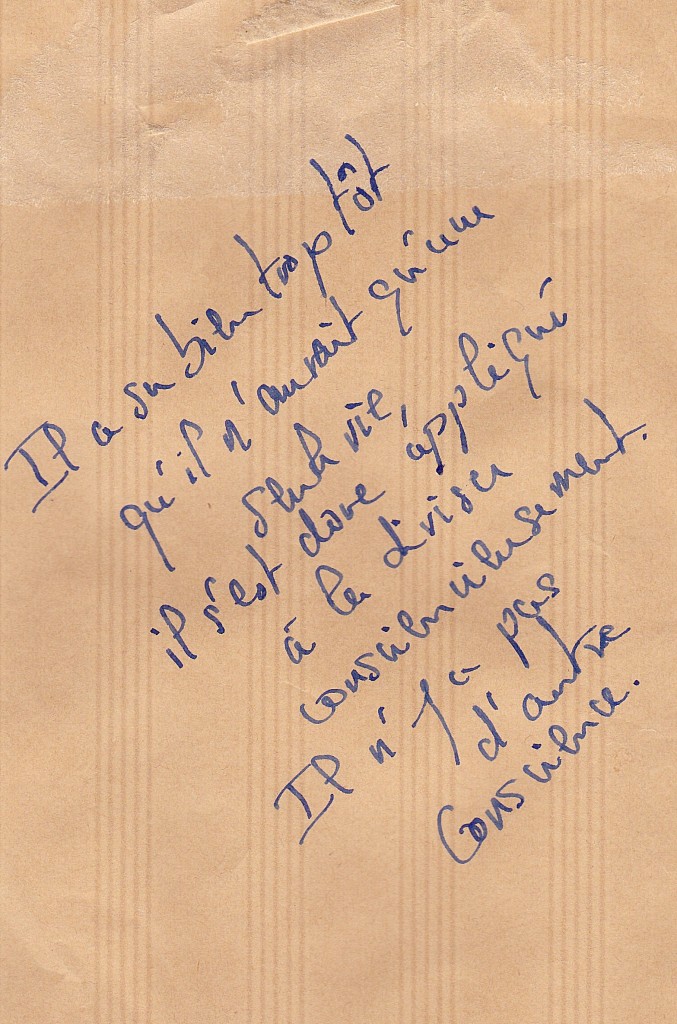 Il a su bien trop tôt
qu'il n'aurait qu'une
seule vie,
il s'est donc appliqué
à la diviser
consciencieusement.
Il n'y a pas
d'autre
conscience.